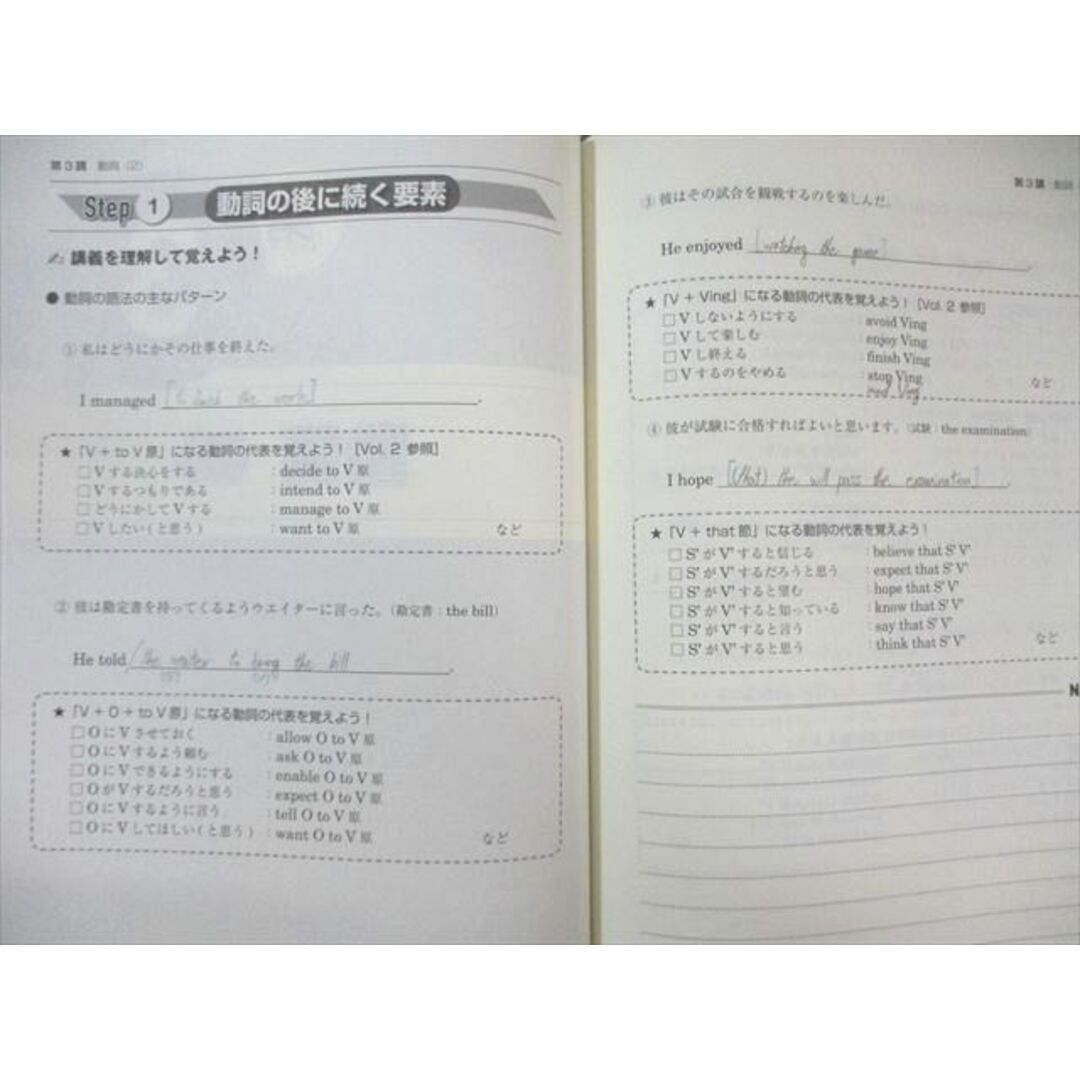 第3講 動詞(2)
Step 1 動詞の後に続く要素
講義を理解して覚えよう！
● 動詞の語法の主なパターン
① 私はどうにかその仕事を終えた。
I managed [to the work].
★「V + to V原」になる動詞の代表を覚えよう！［Vol. 2 参照］
□ V する決心をする : decide to V原
□ V するつもりである : intend to V原
□ どうにかして V する : manage to V原
□ V したい(と思う) : want to V原 など
② 彼は勘定書を持ってくるようウエイターに言った。(勘定書：the bill)
He told the waiter to bring the bill.
★「V + O + to V原」になる動詞の代表を覚えよう！
□ O に V させておく : allow O to V原
□ O に V するよう頼む : ask O to V原
□ O に V できるようにする : enable O to V原
□ O が V するだろうと思う : expect O to V原
□ O に V するように言う : tell O to V原
□ O に V してほしい(と思う) : want O to V原 など
第3講 動詞
③ 彼はその試合を観戦するのを楽しんだ。
He enjoyed [watching the game].
★「V + Ving」になる動詞の代表を覚えよう！［Vol. 2 参照］
□ V しないようにする : avoid Ving
□ V して楽しむ : enjoy Ving
□ V し終える : finish Ving
□ V するのをやめる : stop Ving など
Ving
④ 彼が試験に合格すればよいと思います。(試験：the examination)
I hope [(that) will pass the examination].
★「V + that 節」になる動詞の代表を覚えよう！
□ S' が V' すると信じる : believe that S' V'
□ S' が V' するだろうと思う : expect that S' V'
□ S' が V' すると望む : hope that S' V'
□ S' が V' すると知っている : know that S' V'
□ S' が V' すると言う : say that S' V'
□ S' が V' すると思う : think that S' V' など
N